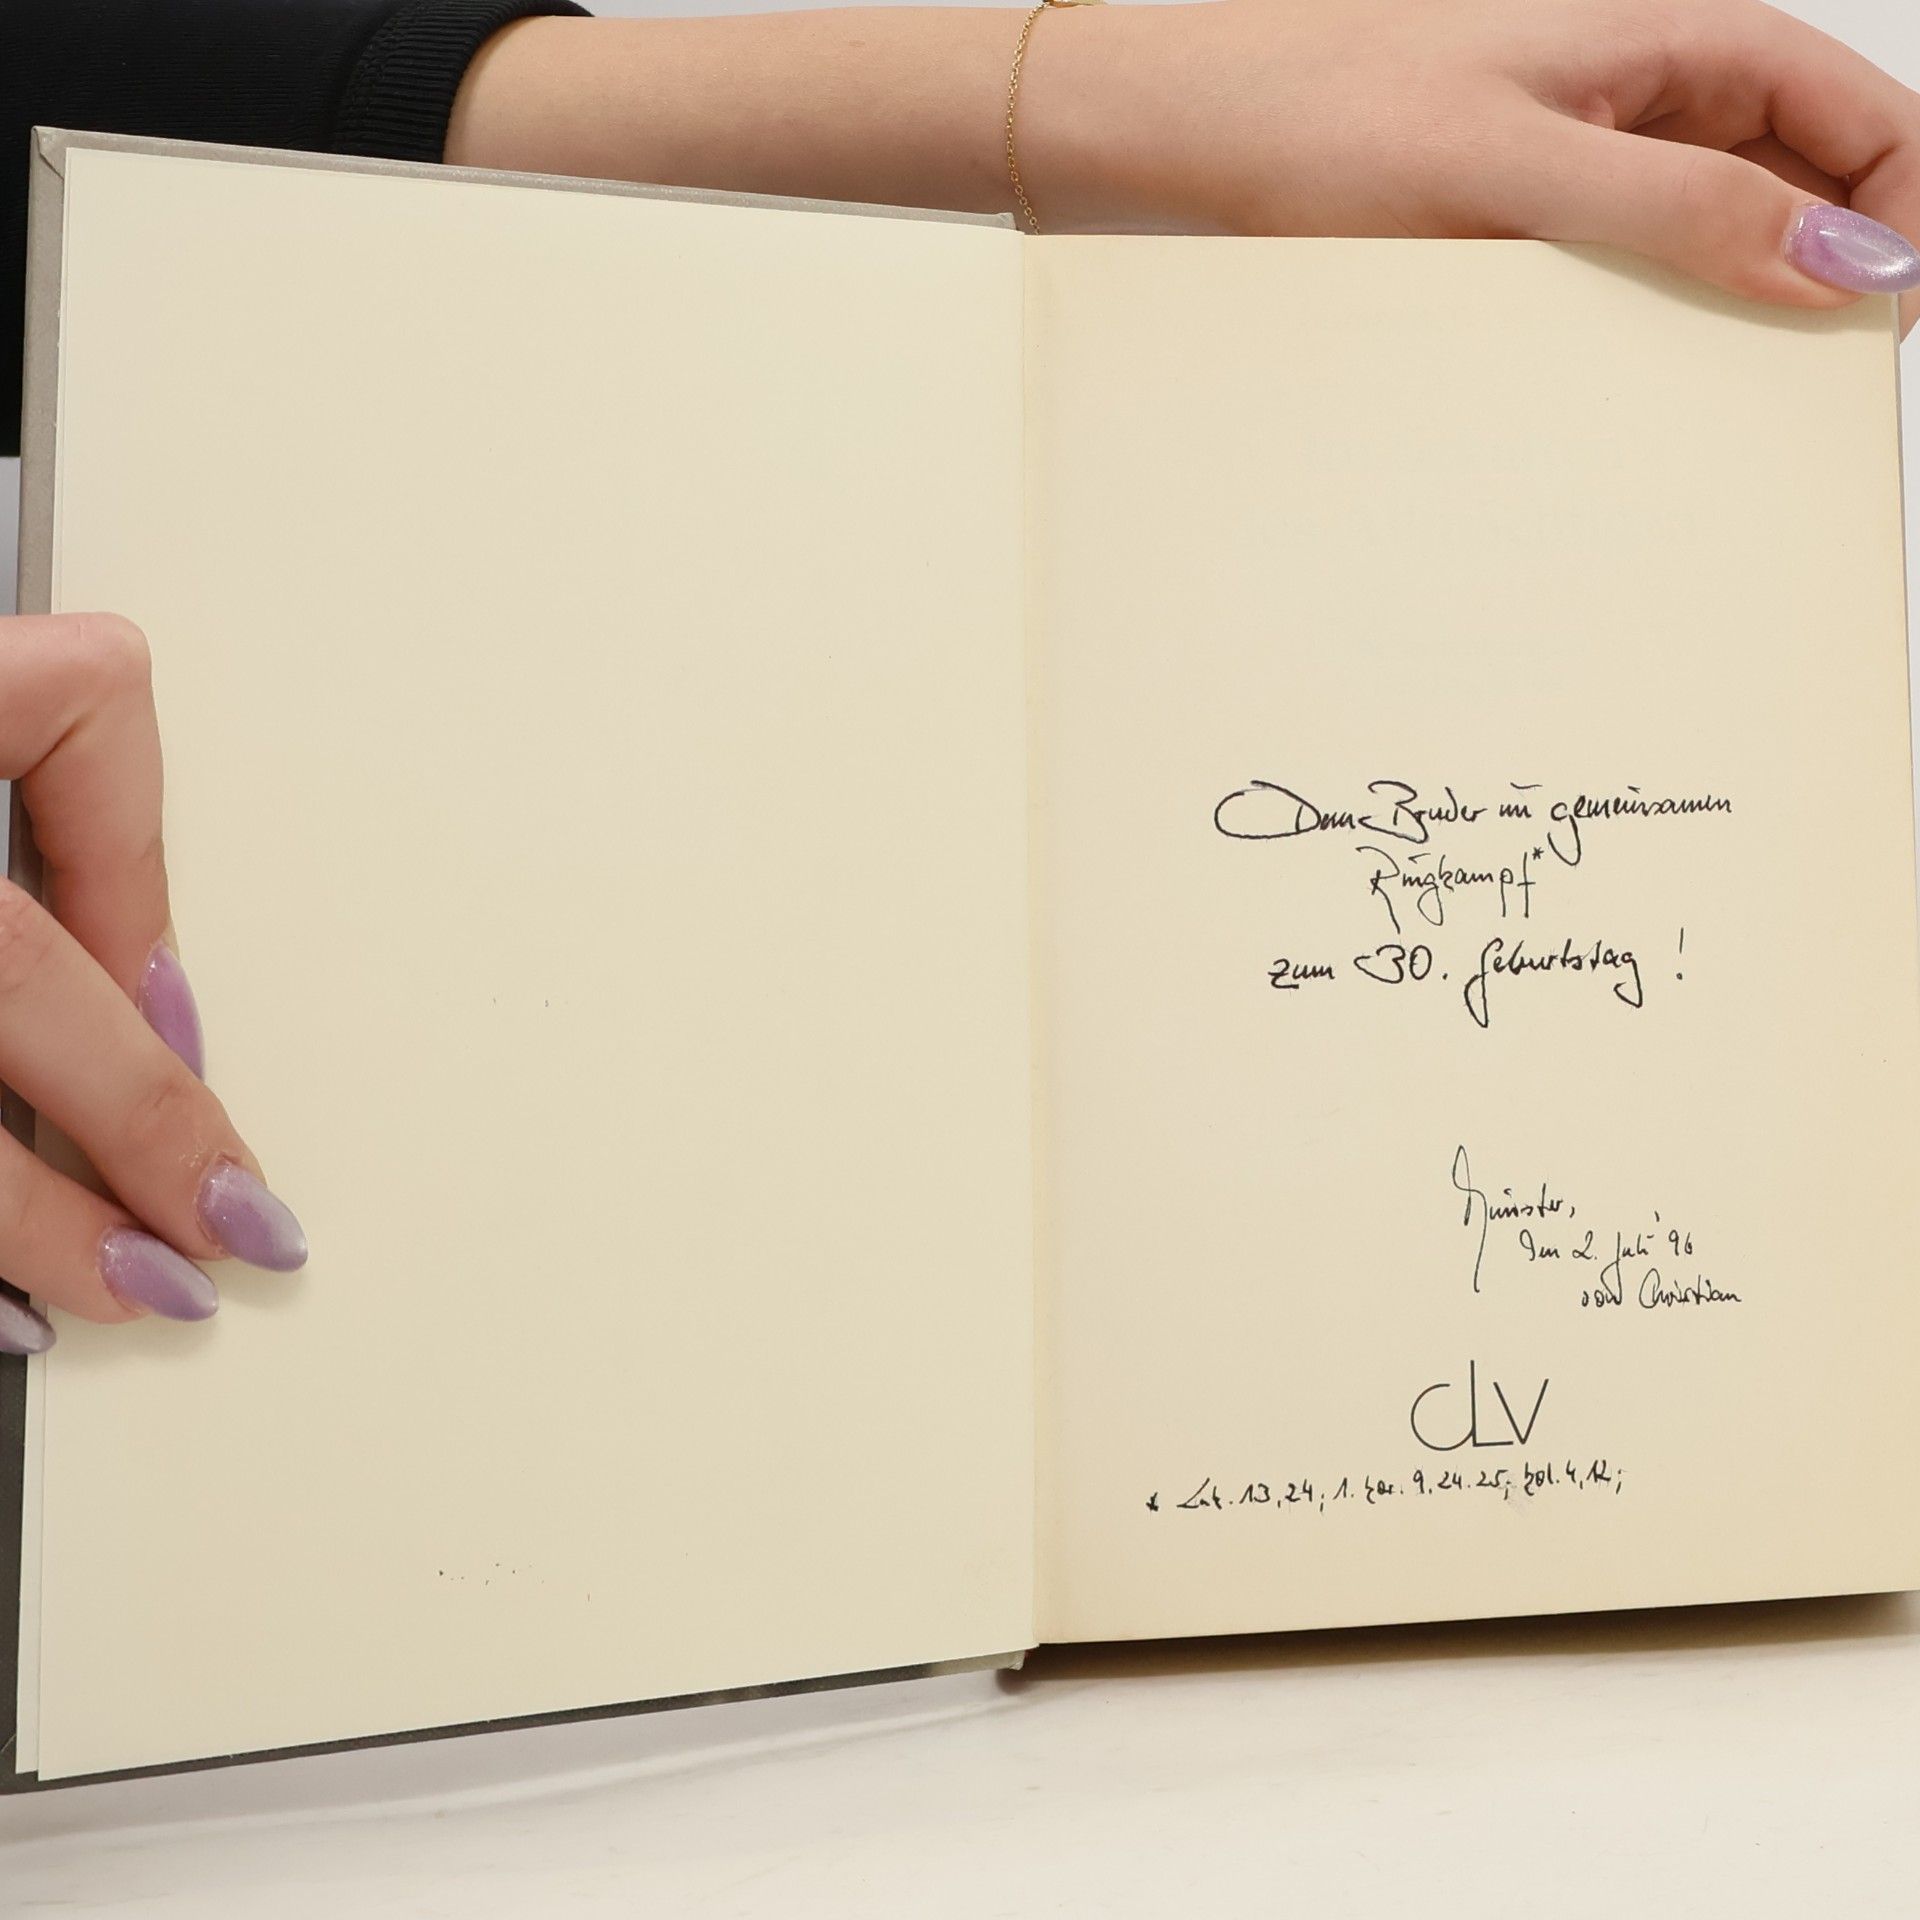 Dem Bruder im gemeinsamen
Ringkampf*
zum 30. Geburtstag !
Münster,
den 2. Juli '96
von Christian
CLV
* Luk. 13,24; 1. Kor. 9,24.25; Kol. 4,12;